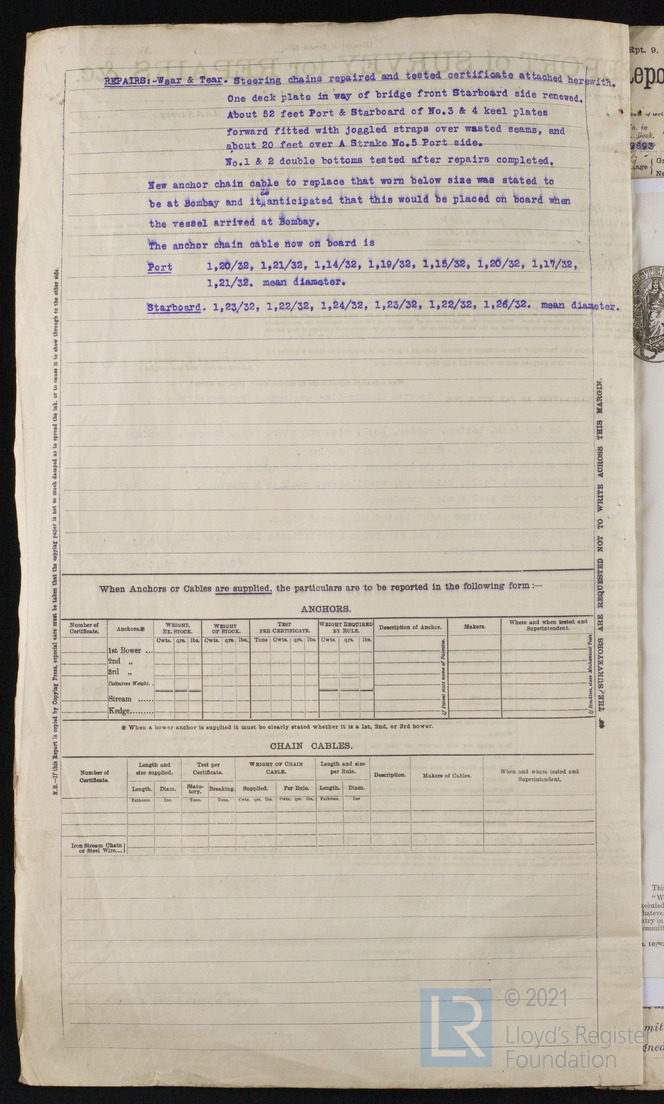 REPAIRS:-Wear & Tear. Steering chains repaired and tested certificate attached herewith.
One deck plate in way of bridge front Starboard side renewed.
About 52 feet Port & Starboard of No.3 & 4 keel plates
forward fitted with joggled straps over wasted seams, and
about 20 feet over A Strake No.5 Port side.
No.1 & 2 double bottoms tested after repairs completed.
New anchor chain cable to replace that worn below size was stated to
be at Bombay and it is anticipated that this would be placed on board when
the vessel arrived at Bombay.
The anchor chain cable now on board is
Port 1,20/32, 1,21/32, 1,14/32, 1,19/32, 1,15/32, 1,20/32, 1,17/32,
1,21/32. mean diameter.
Starboard. 1,23/32, 1,22/32, 1,24/32, 1,23/32, 1,22/32, 1,26/32. mean diameter.
When Anchors or Cables are supplied, the particulars are to be reported in the following form :—
ANCHORS.
Number of Certificate. Anchors.* WEIGHT, EX. STOCK. WEIGHT OF STOCK. TEST PER CERTIFICATE. WEIGHT REQUIRED BY RULE. Description of Anchor. Makers. Where and when tested and Superintendent.
Cwts. qrs. lbs. Cwts. qrs. lbs. Tons Cwts. qrs. lbs. Cwts. qrs. lbs.
1st Bower ...
2nd „
3rd „
Collective Weight.
Stream ......
Kedge.........
* When a bower anchor is supplied it must be clearly stated whether it is a 1st, 2nd, or 3rd bower.
CHAIN CABLES.
Number of Certificate. Length and size supplied. Test per Certificate. WEIGHT OF CHAIN CABLE. Length and size per Rule. Description. Makers of Cables. When and where tested and Superintendent.
Length. Diam. Statutory. Breaking. Supplied. Per Rule. Length. Diam.
Fathoms. Ins. Tons. Tons. Cwts. qrs. lbs. Cwts. qrs. lbs. Fathoms. Ins
Iron Stream Chain
or Steel Wire....
N.B.—If this Report is copied by Copying Press, especial care must be taken that the copying paper is not so much damped as to spread the ink, or to cause it to show through to the other side.
THE SURVEYORS ARE REQUESTED NOT TO WRITE ACROSS THIS MARGIN.
Rpt. 9.
© 2021
LR
Lloyd's Register
Foundation